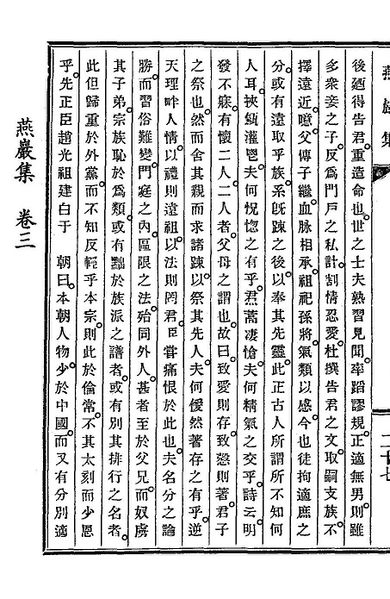 燕巖集
二十七
後廼得告君重造命也世之士夫熟習見聞牽蹈謬規正適無男則雖
多衆妾之子反爲門戶之私計割情忍愛杜撰告君之文取嗣支族不
擇遠近噫父傳子繼血脉相承祖祀孫將氣類以感今也徒拘適庶之
分或有遠取乎族系旣踈之後以奉其先靈此正古人所謂所不知何
人耳裸鬯灌鬯夫何怳惚之有乎焄蒿凄愴夫何精氣之交乎詩云明
發不寐有懷二人二人者父母之謂也故曰致愛則存致慤則著君子
之祭也然而舍其親而求諸踈以祭其先人夫何僾然著存之有乎逆
天理畔人情以禮則遠祖以法則罔君臣甞痛恨於此也夫名分之論
勝而習俗難變門庭之內區限之法殆同外人甚者至於父兄而奴虜
其子弟宗族恥於爲類或有黜於族派之譜者或有別其排行之名者
此但歸重於外黨而不知反輕乎本宗則此於倫常不其太刻而少恩
乎先正臣趙光祖建白于 朝曰本朝人物少於中國而又有分別適
燕巖集 卷三